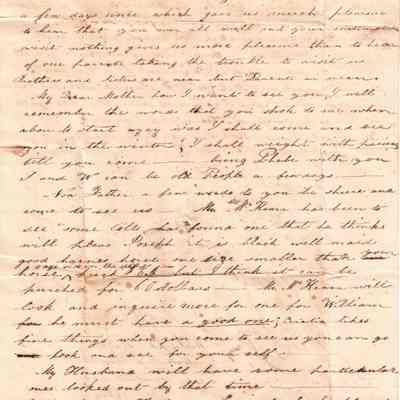 a few days since which gave us much pleasure
to hear that you were all well and your
visit nothing gives us more pleasure than to hear
of our parents taking the trouble to visit us
Brothers and Sisters are near but Parents are nearer
My Dear Mother how I want to see you I well
remember the words that you spoke to me when
about to start away was I shall come and see
you in the winter; I shall weight with
till you come — bring Phebe with you
I and W can be old People a few days —
Now Father a few words to you be shure and
come to see us — Mr Mc has been to
see some colts has found one that he thinks
will please Joseph it is black well maid
good harness bred one size smaller than your
but I think it can be
purched for 60 dollars — Mr Mc will
look and inquire more for one for William
for he must have a good one; likes
fine things when you come to see us you can go
look and see for your self —
My Husband will have some
ones looked out by that time —